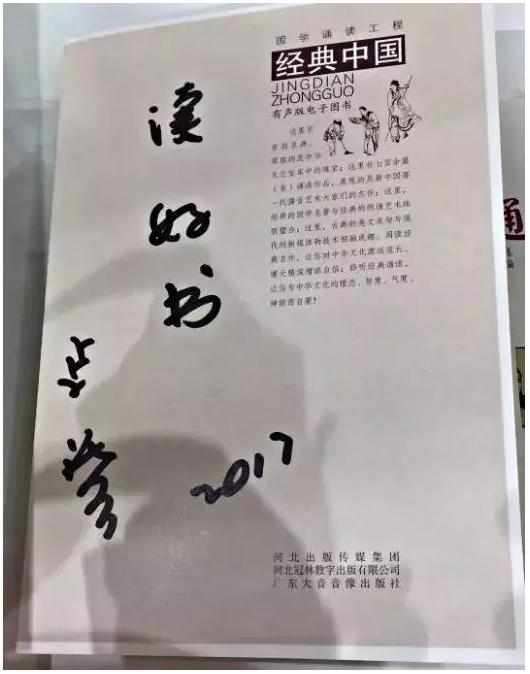 国学诵读工程
经典中国
JINGDIAN
ZHONGGUO
有声版电子图书
这里有
名典，
的是中华
文化宝库中的瑰宝；这里有七百余篇
（首）诵读作品，展现的是新中国第
一代播音艺术大家们的杰作；这里，
经典的国学名著与经典的朗诵艺术珠
联璧合；这里，古典的美文美句与现
代的新媒体新技术相融成趣。阅读经
典名作，让你对中华文化源远流长、
博大精深增添自信；聆听经典诵读，
让你为中华文化的理念、智慧、气度、
神韵而自豪！
读好书
2017
河北出版传媒集团
河北冠林数字出版有限公司
广东大音音像出版社
通